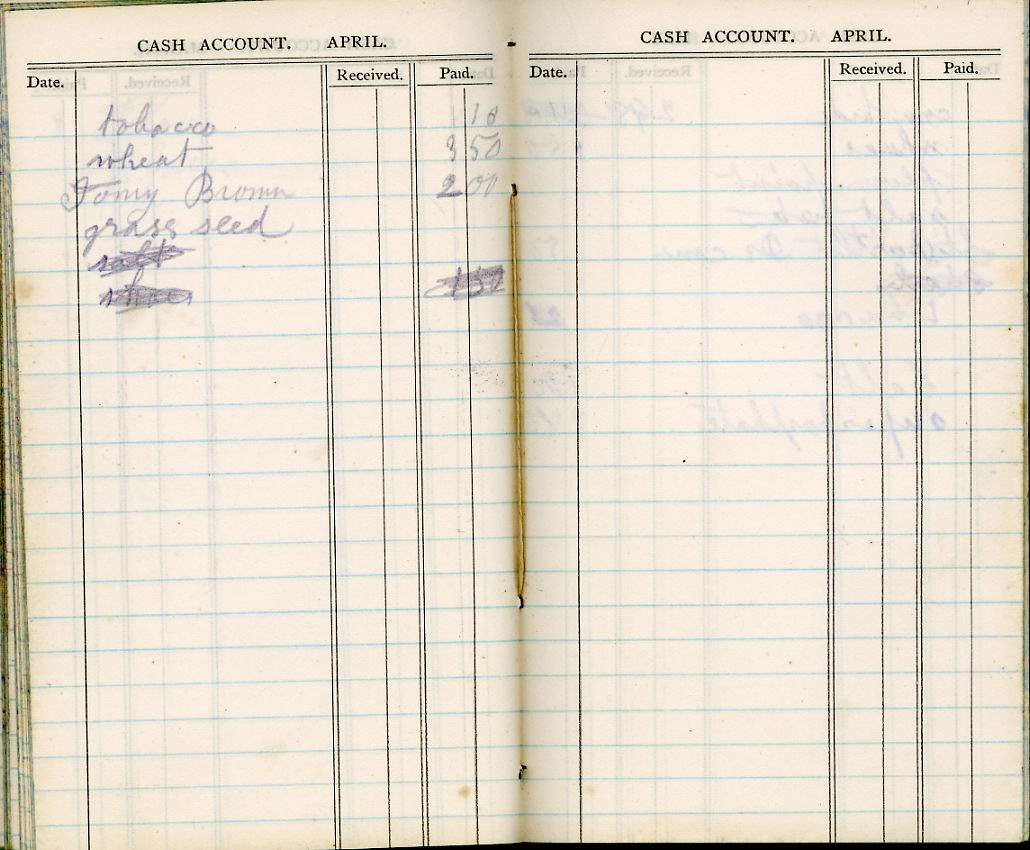 CASH ACCOUNT. APRIL.
Date. Received. Paid.
tobacco 10
wheat 3 50
Tomy Brown 2 00
grass seed
salt
shoes
CASH ACCOUNT. APRIL.
Date. Received. Paid.